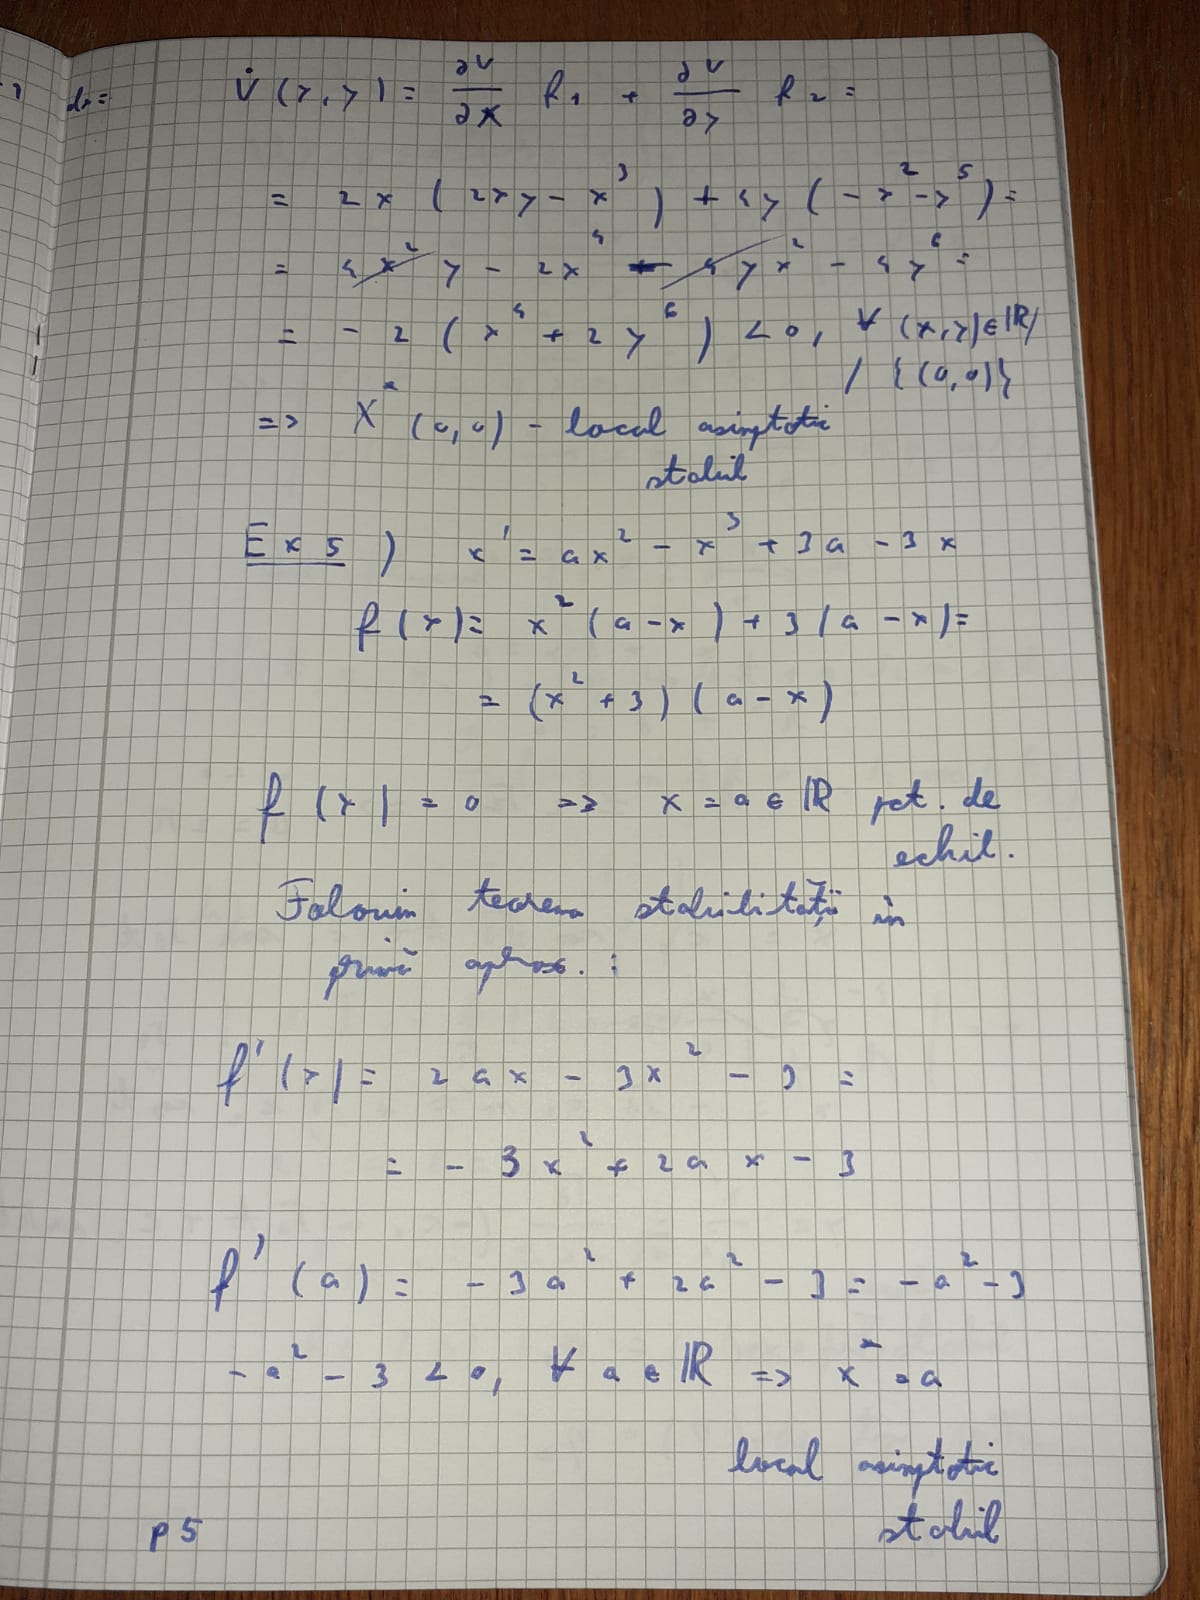 dr =
V̇ (x, y) = ∂V/∂x f₁ + ∂V/∂y f₂ =
= 2x (2xy - x³) + 4y (-x² - y⁵) =
= 4x²y - 2x⁴ - 4yx² - 4y⁶ =
= -2 (x⁴ + 2y⁶) < 0, ∀ (x, y) ∈ ℝ /
/ {(0,0)}
=> X* (0,0) - local asimptotic
stabil
Ex 5) x' = ax² - x³ + 3a - 3x
f(x) = x² (a - x) + 3(a - x) =
= (x² + 3) (a - x)
f(x) = 0 => x = a ∈ ℝ pct. de
echil.
Folosim teorema stabilității în
primă aprox. :
f'(x) = 2ax - 3x² - 3 =
= -3x² + 2ax - 3
f'(a) = -3a² + 2a² - 3 = -a² - 3
-a² - 3 < 0, ∀ a ∈ ℝ => x* = a
local asimptotic
stabil
p5